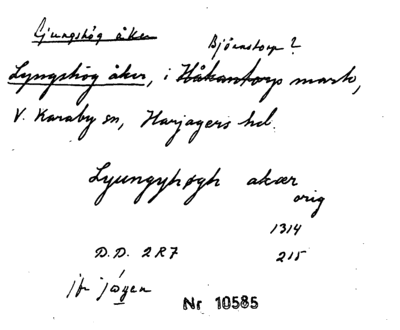 Ljungshög åker
Björnstorp?
Lyngshög åker, i Håkantorps mark,
V. Karaby sn, Harjagers hd.
Lyungyhøgh akær
orig
1314
D.D. 2R7 215
jfr jægen
Nr 10585